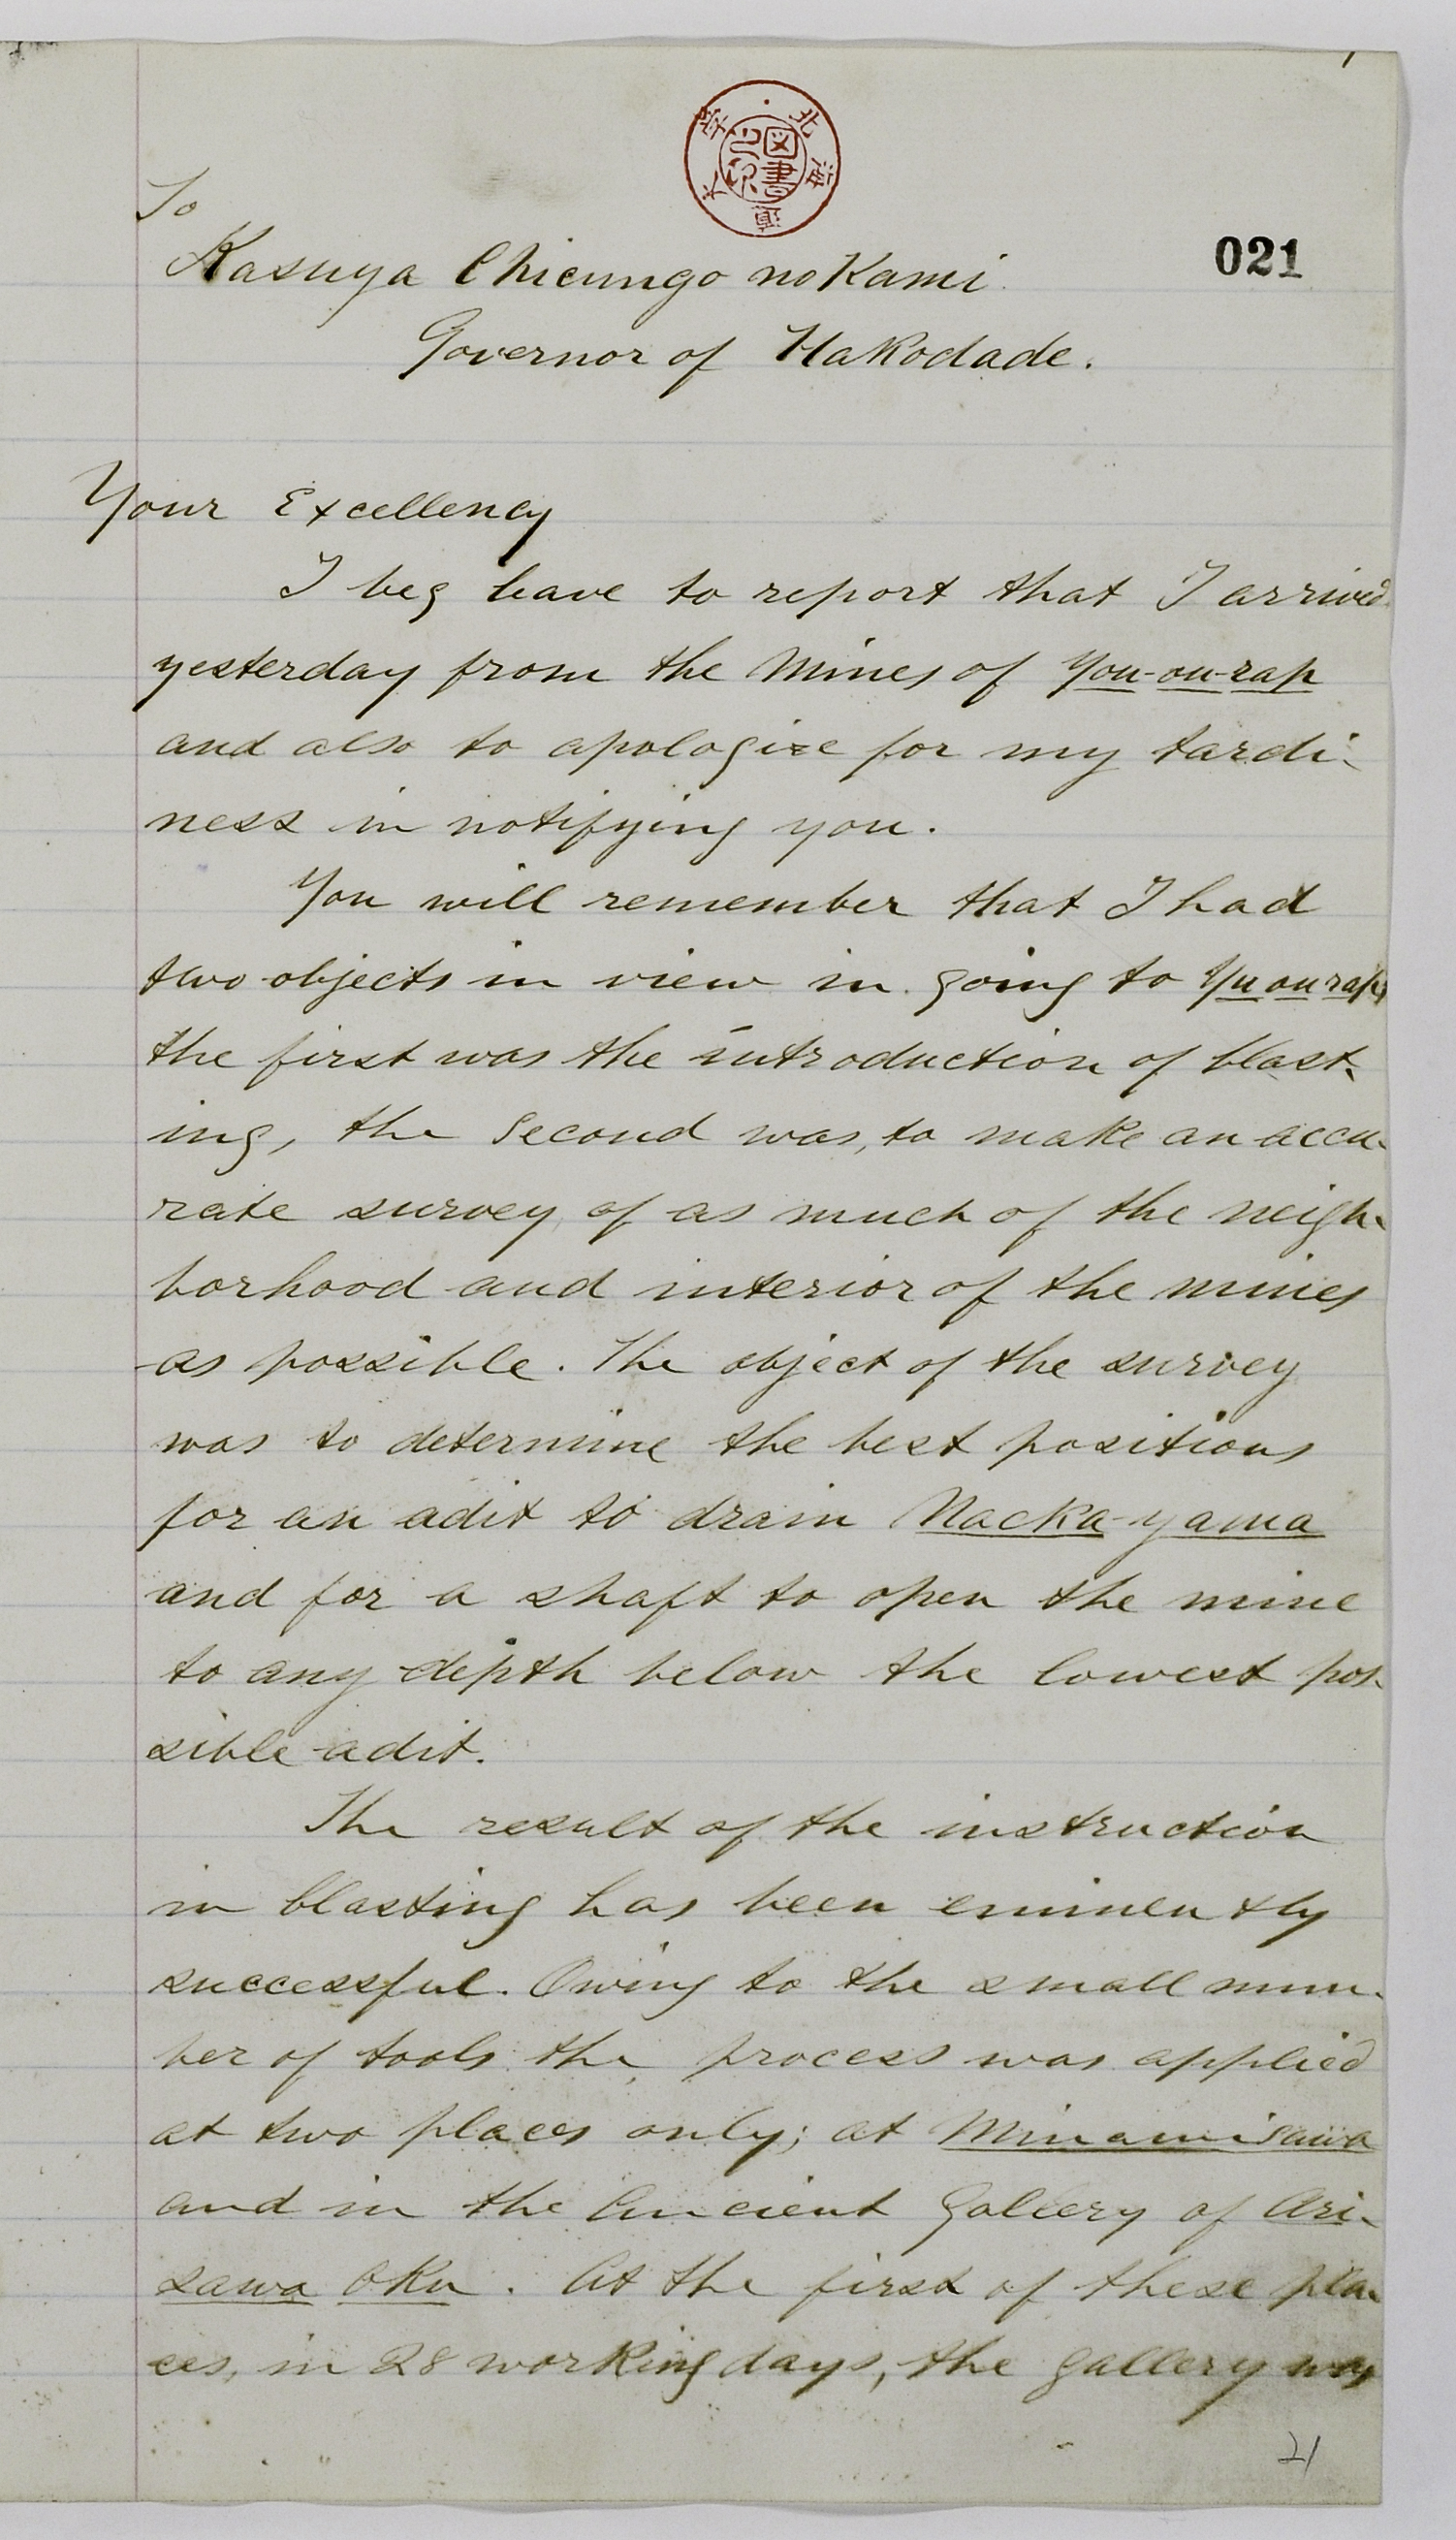 北海道大学
図書
021
To
Kasuya Chicungo no Kami
Governor of Hakodade.
Your Excellency
I beg leave to report that I arrived
yesterday from the Mines of You-ou-rap
and also to apologize for my tardi-
ness in notifying you.
You will remember that I had
two objects in view in going to Yuourap,
the first was the introduction of blast-
ing, the second was, to make an accu-
rate survey of as much of the neigh-
borhood and interior of the mines
as possible. The object of the survey
was to determine the best positions
for an adit to drain Nacka-yama
and for a shaft to open the mine
to any depth below the lowest pos-
sible adit.
The result of the instruction
in blasting has been eminently
successful. Owing to the small num-
ber of tools the process was applied
at two places only; at Minamisawa
and in the Ancient Gallery of Ari-
sawa Oku. At the first of these pla-
ces, in 28 working days, the gallery was
21